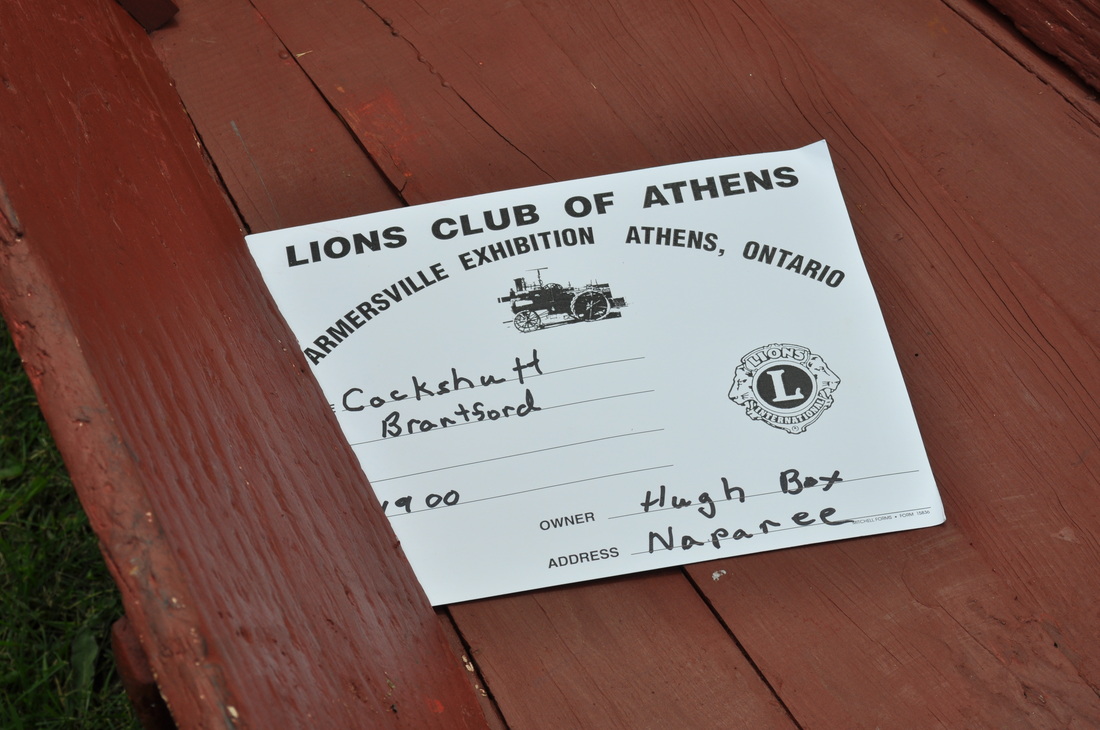 LIONS CLUB OF ATHENS
ARMERSVILLE EXHIBITION ATHENS, ONTARIO
Cockshutt
Brantford
1900
LIONS
L
INTERNATIONAL
OWNER Hugh Box
ADDRESS Naparee
MITCHELL FORMS • FORM